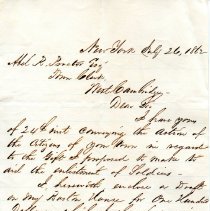 New York July 26, 1862
Abel R. Proctor Esq
Town Clerk
West Cambridge
Dear Sir,
I have yours
of 24 inst. conveying the action of
the Citizens of your Town in regard
to the Gift I proposed to make to
aid the enlistment of Soldiers
I herewith enclose a Draft
on my Boston House for One Hundred